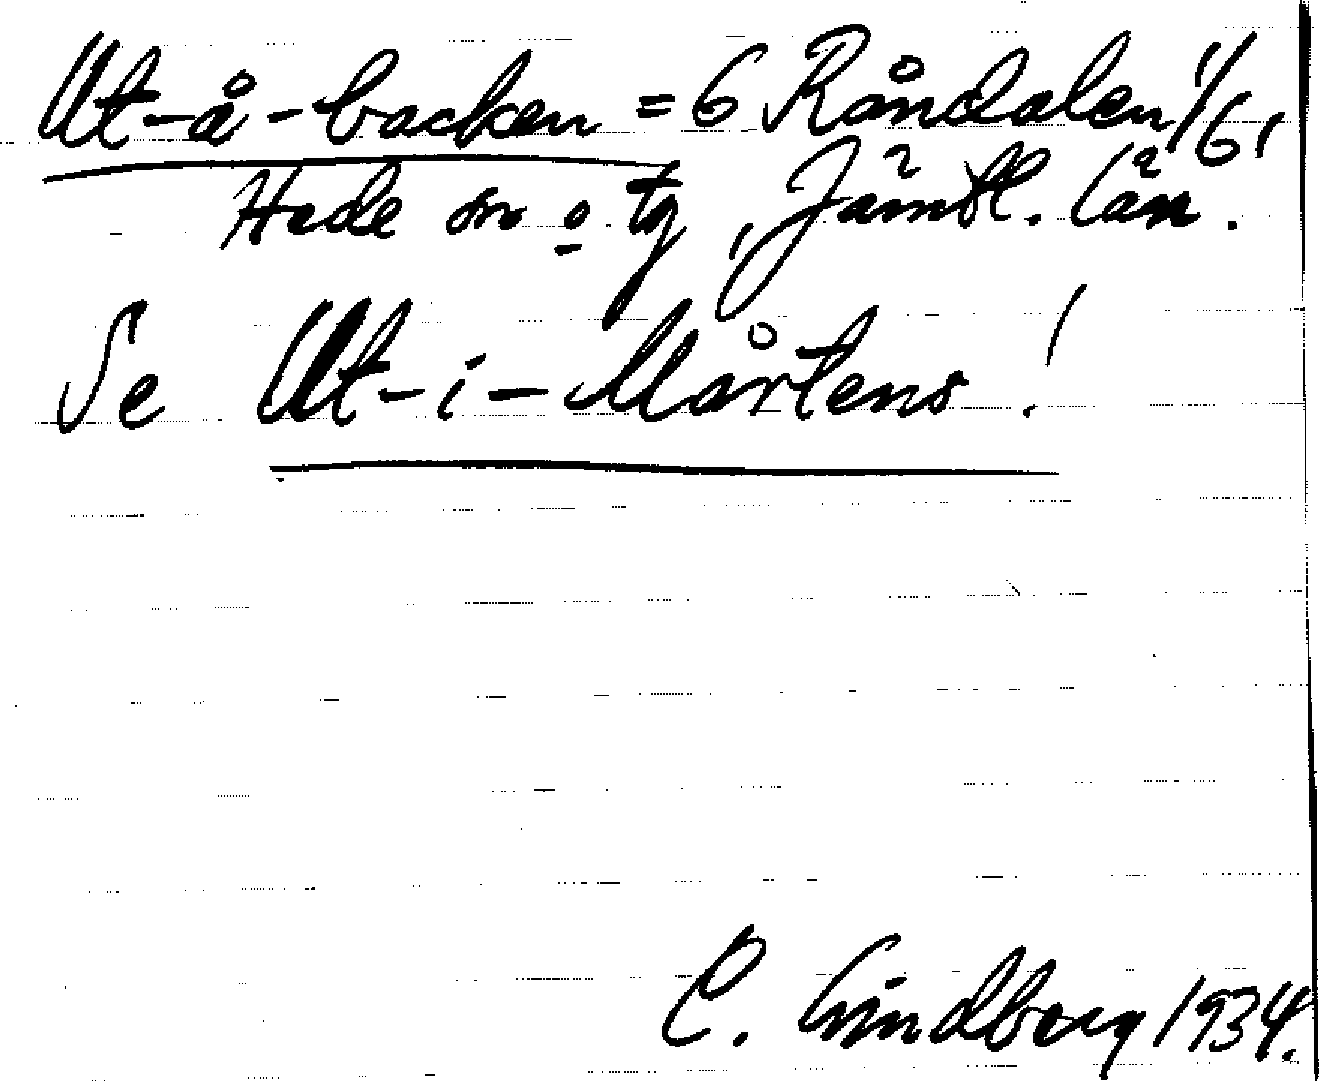 Ut-å-backen = 6 Råndalen 1/6,
Hede sn o tg, Jämtl. län.
Se Ut-i-Mårtens!
C. Lindberg 1934.